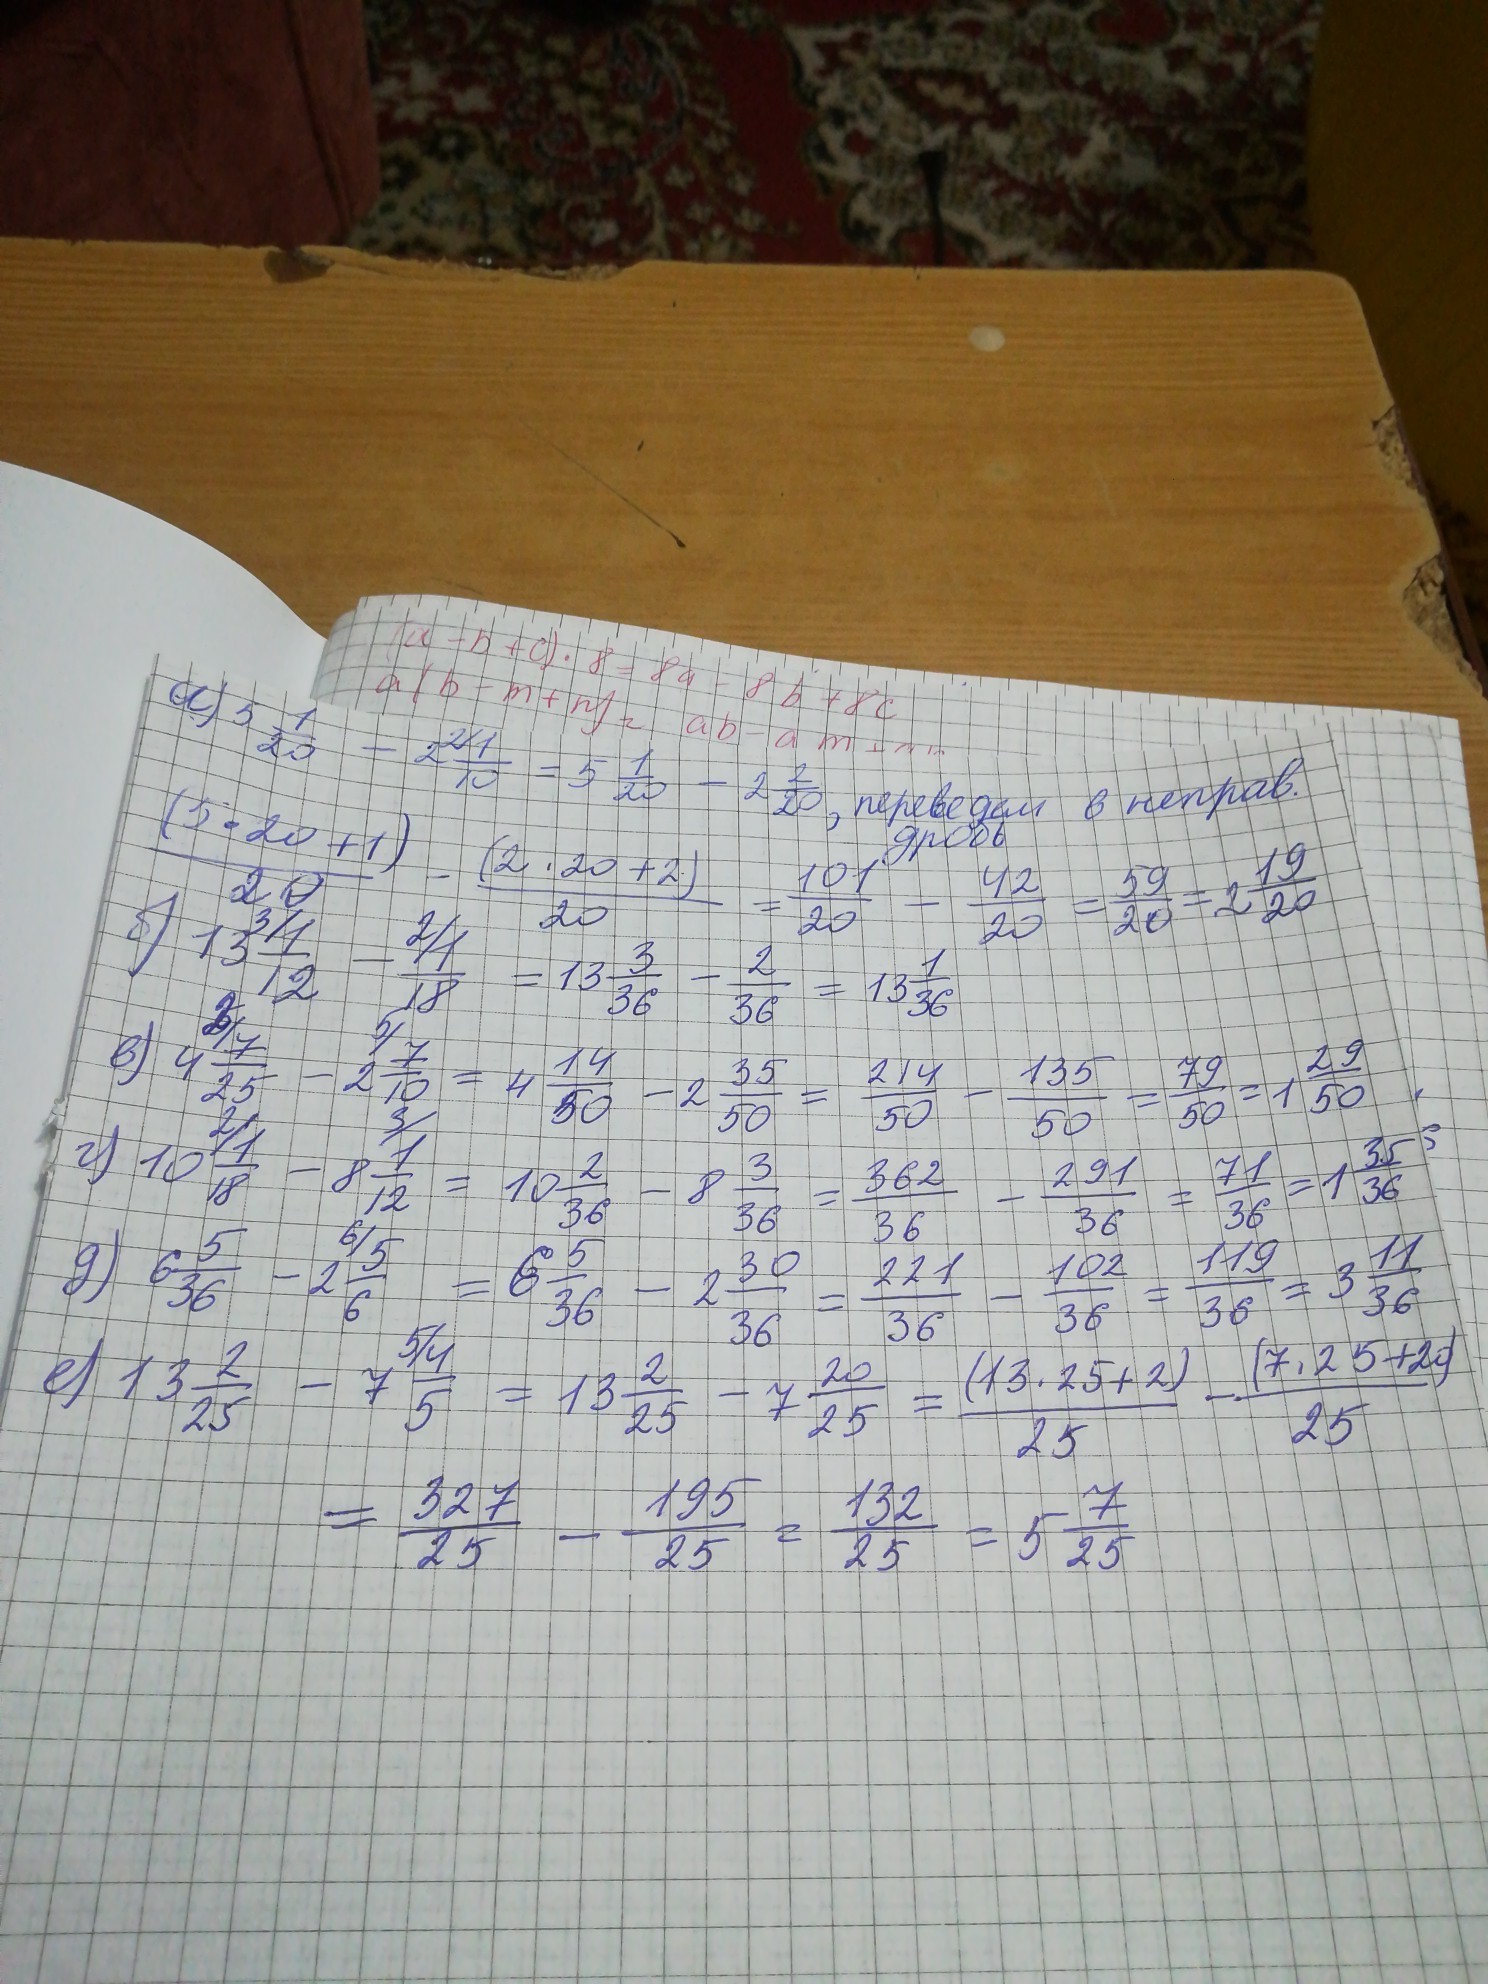 (a - b + c) · 8 = 8a - 8b + 8c
a(b - m + n) = ab - am
а) 5 1/20 - 2 2/1/10 = 5 1/20 - 2 2/20, переведем в неправ. дробь
(5·20+1)/20 - (2·20+2)/20 = 101/20 - 42/20 = 59/20 = 2 19/20
б) 13 3/1/12 - 2/1/18 = 13 3/36 - 2/36 = 13 1/36
в) 4 2/7/25 - 2 5/7/10 = 4 14/50 - 2 35/50 = 214/50 - 135/50 = 79/50 = 1 29/50,
г) 10 2/1/18 - 8 3/1/12 = 10 2/36 - 8 3/36 = 362/36 - 291/36 = 71/36 = 1 35/36;
д) 6 5/36 - 2 6/5/6 = 6 5/36 - 2 30/36 = 221/36 - 102/36 = 119/36 = 3 11/36
е) 13 2/25 - 7 5/4/5 = 13 2/25 - 7 20/25 = (13·25+2)/25 - (7·25+20)/25
= 327/25 - 195/25 = 132/25 = 5 7/25